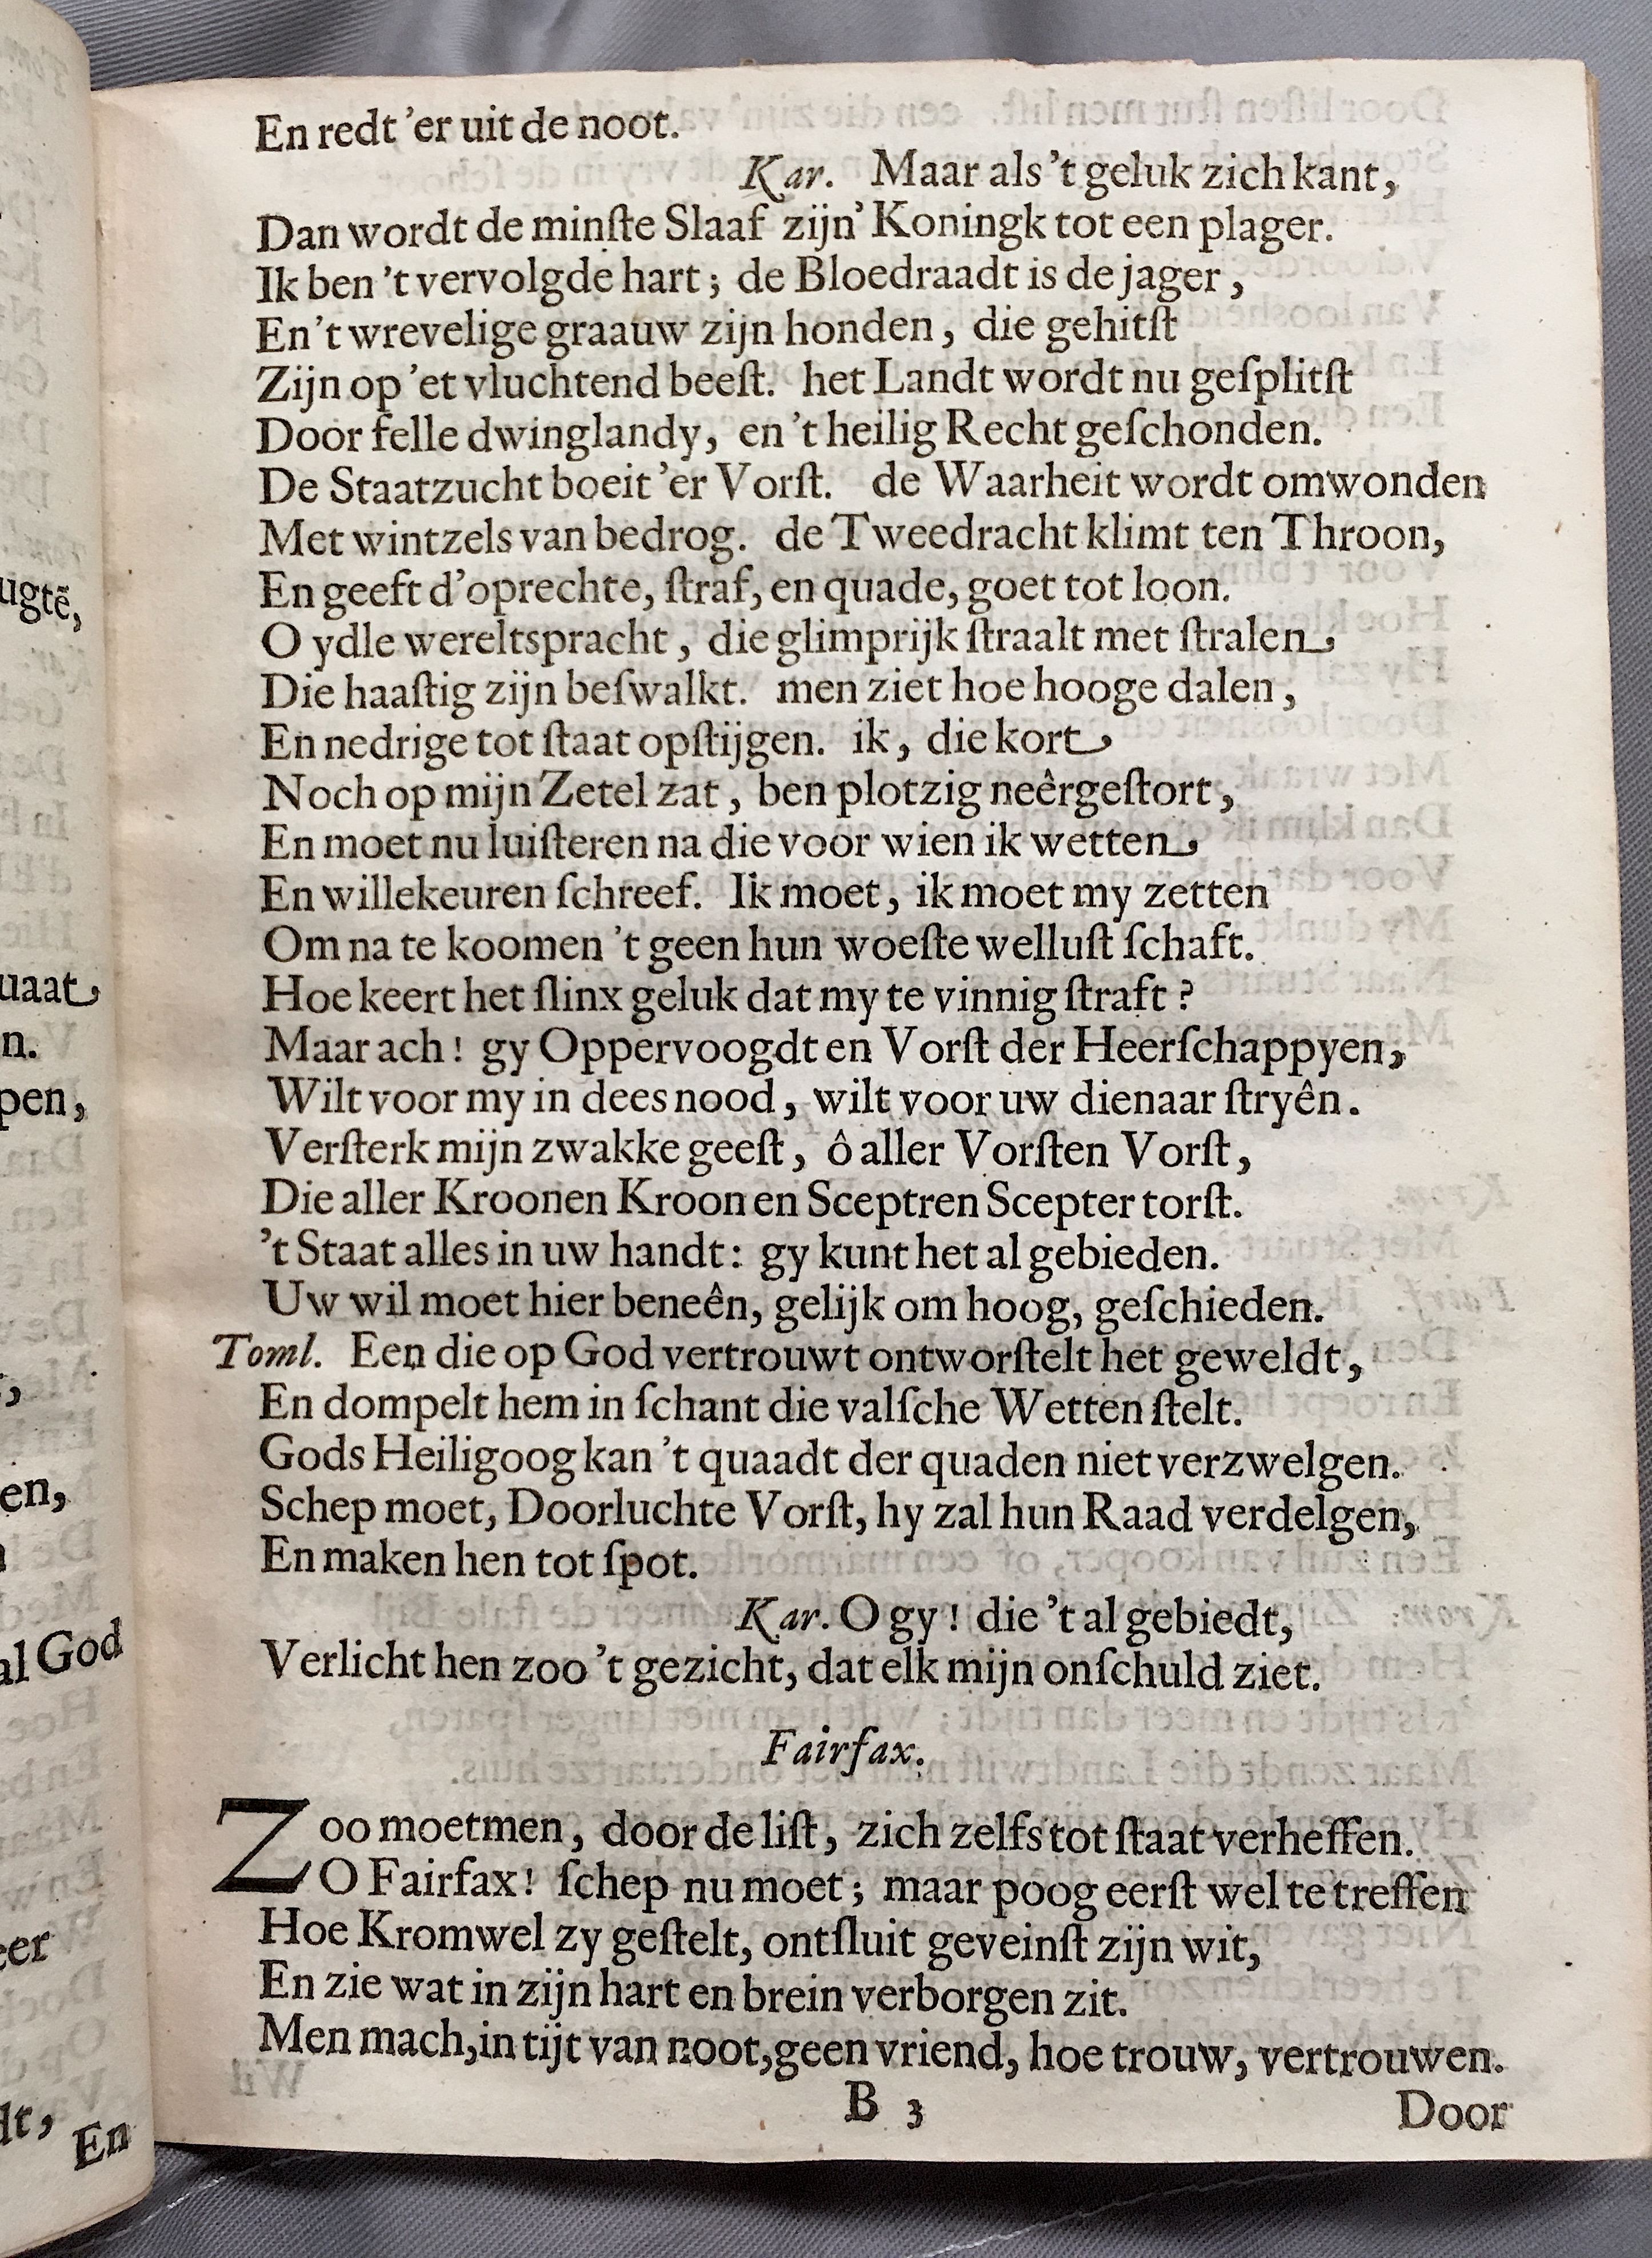 En redt 'er uit de noot.
Kar. Maar als 't geluk zich kant,
Dan wordt de minſte Slaaf zijn' Koningk tot een plager.
Ik ben 't vervolgde hart; de Bloedraadt is de jager,
En 't wrevelige graauw zijn honden, die gehitſt
Zijn op 'et vluchtend beeſt. het Landt wordt nu geſplitſt
Door felle dwinglandy, en 't heilig Recht geſchonden.
De Staatzucht boeit 'er Vorſt. de Waarheit wordt omwonden
Met wintzels van bedrog. de Tweedracht klimt ten Throon,
En geeft d'oprechte, ſtraf, en quade, goet tot loon.
O ydle wereltspracht, die glimprijk ſtraalt met ſtralen
Die haaſtig zijn beſwalkt. men ziet hoe hooge dalen,
En nedrige tot ſtaat opſtijgen. ik, die kort
Noch op mijn Zetel zat, ben plotzig neêrgeſtort,
En moet nu luiſteren na die voor wien ik wetten
En willekeuren ſchreef. Ik moet, ik moet my zetten
Om na te koomen 't geen hun woeſte welluſt ſchaft.
Hoe keert het ſlinx geluk dat my te vinnig ſtraft?
Maar ach! gy Oppervoogdt en Vorſt der Heerſchappyen,
Wilt voor my in dees nood, wilt voor uw dienaar ſtryên.
Verſterk mijn zwakke geeſt, ô aller Vorſten Vorſt,
Die aller Kroonen Kroon en Sceptren Scepter torſt.
't Staat alles in uw handt: gy kunt het al gebieden.
Uw wil moet hier beneên, gelijk om hoog, geſchieden.
Toml. Een die op God vertrouwt ontworſtelt het geweldt,
En dompelt hem in ſchant die valſche Wetten ſtelt.
Gods Heiligoog kan 't quaadt der quaden niet verzwelgen.
Schep moet, Doorluchte Vorſt, hy zal hun Raad verdelgen,
En maken hen tot ſpot.
Kar. O gy! die 't al gebiedt,
Verlicht hen zoo 't gezicht, dat elk mijn onſchuld ziet.
Fairfax.
Zoo moetmen, door de liſt, zich zelfs tot ſtaat verheffen.
O Fairfax! ſchep nu moet; maar poog eerſt wel te treffen
Hoe Kromwel zy geſtelt, ontſluit geveinſt zijn wit,
En zie wat in zijn hart en brein verborgen zit.
Men mach, in tijt van noot, geen vriend, hoe trouw, vertrouwen.
B 3
Door